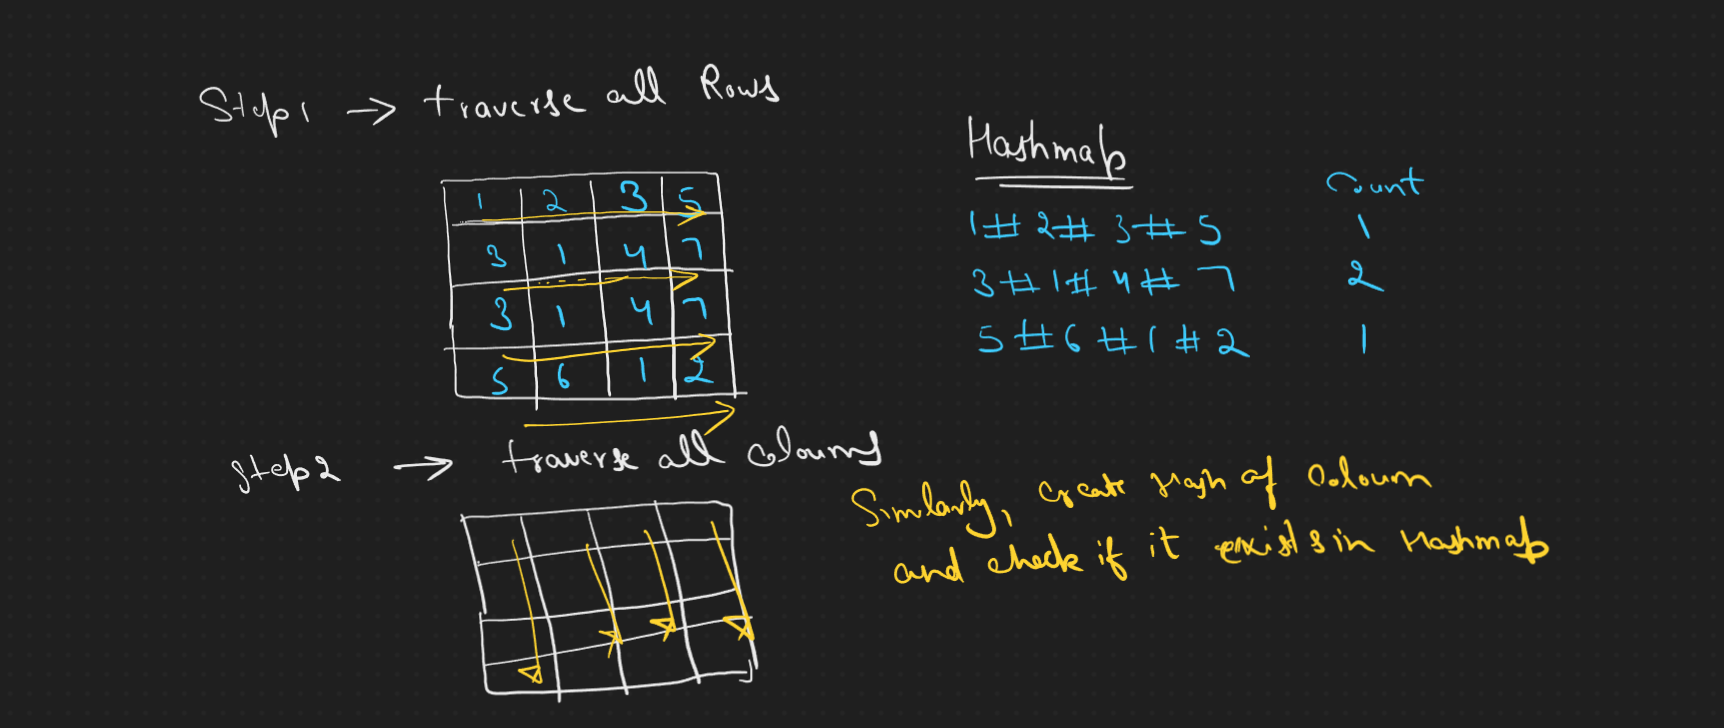 Step 1 → traverse all Rows
1 2 3 5
3 1 4 7
3 1 4 7
5 6 1 2
Hashmap
Count
1# 2# 3# 5 1
3#1# 4# 7 2
5#6#1#2 1
Step2 → traverse all coloumns
Similarly, create Hash of coloumn
and check if it exists in Hashmap